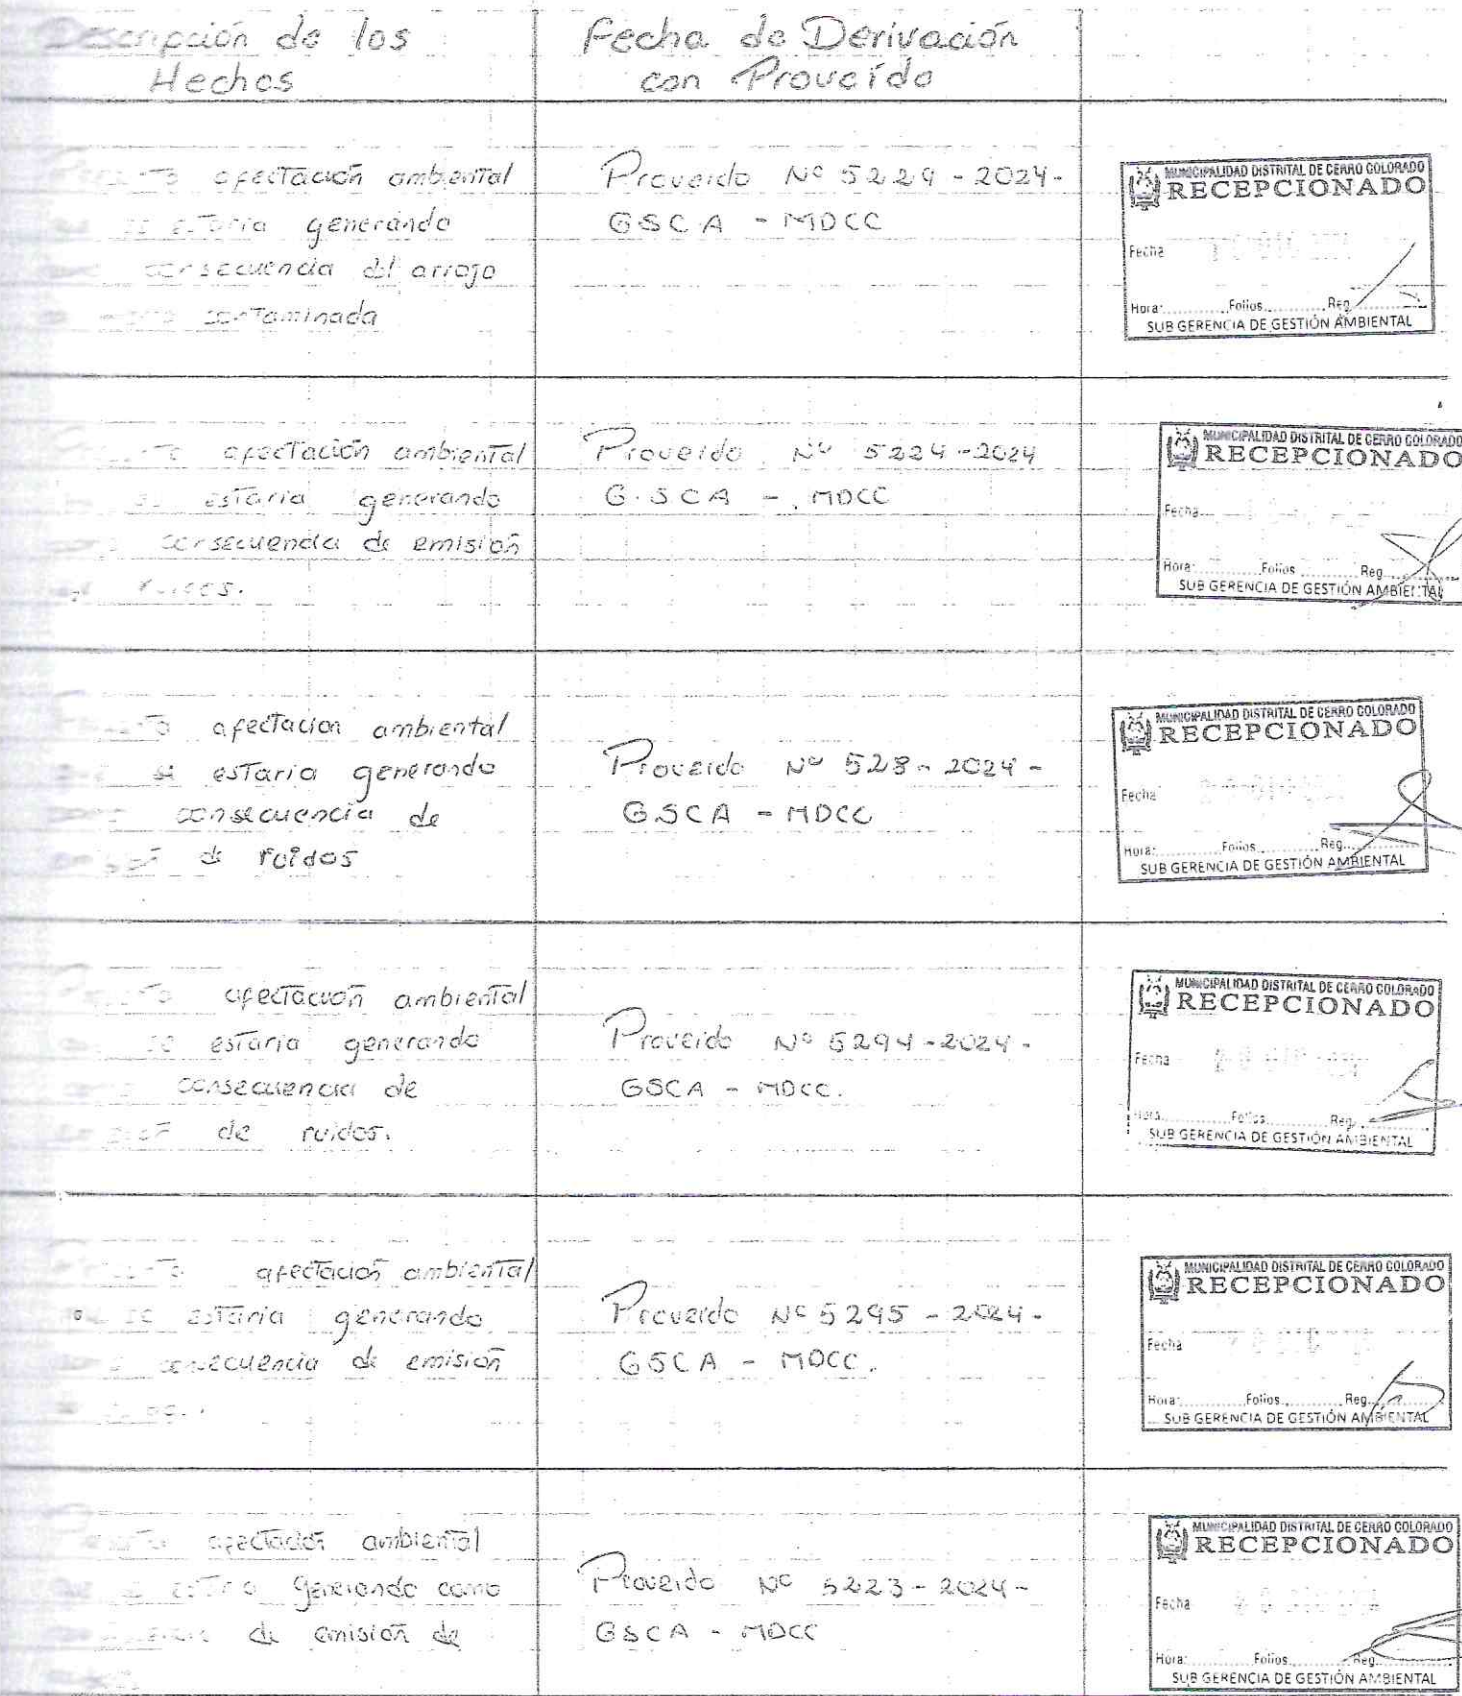 Descripción de los
Hechos
Fecha de Derivación
con Proveído
afectación ambiental
estaria generando
consecuencia del arrojo
contaminada
Proveido Nº 5229-2024-
GSCA - MDCC
MUNICIPALIDAD DISTRITAL DE CERRO COLORADO
RECEPCIONADO
Fecha
Hora: Folios Reg
SUB GERENCIA DE GESTIÓN AMBIENTAL
afectación ambiental
se estaria generando
consecuencia de emisión
Proveido Nº 5224-2024
G.SCA - MDCC
MUNICIPALIDAD DISTRITAL DE CERRO COLORADO
RECEPCIONADO
Fecha
Hora: Folios Reg
SUB GERENCIA DE GESTIÓN AMBIENTAL
afectacion ambiental
se estaria generando
consecuencia de
de ruidos
Proveido Nº 528-2024-
GSCA - MDCC
MUNICIPALIDAD DISTRITAL DE CERRO COLORADO
RECEPCIONADO
Fecha
Hora: Folios Reg
SUB GERENCIA DE GESTIÓN AMBIENTAL
afectación ambiental
se estaria generando
consecuencia de
de ruidos.
Proveido Nº 5294-2024-
GSCA - MDCC.
MUNICIPALIDAD DISTRITAL DE CERRO COLORADO
RECEPCIONADO
Fecha
Hora: Folios Reg
SUB GERENCIA DE GESTIÓN AMBIENTAL
afectación ambiental
se estaria generando
consecuencia de emisión
Proveido Nº 5295-2024-
GSCA - MDCC.
MUNICIPALIDAD DISTRITAL DE CERRO COLORADO
RECEPCIONADO
Fecha
Hora: Folios Reg
SUB GERENCIA DE GESTIÓN AMBIENTAL
afectación ambiental
generando como
de emisión de
Proveido Nº 5223-2024-
GSCA - MDCC
MUNICIPALIDAD DISTRITAL DE CERRO COLORADO
RECEPCIONADO
Fecha
Hora: Folios Reg
SUB GERENCIA DE GESTIÓN AMBIENTAL